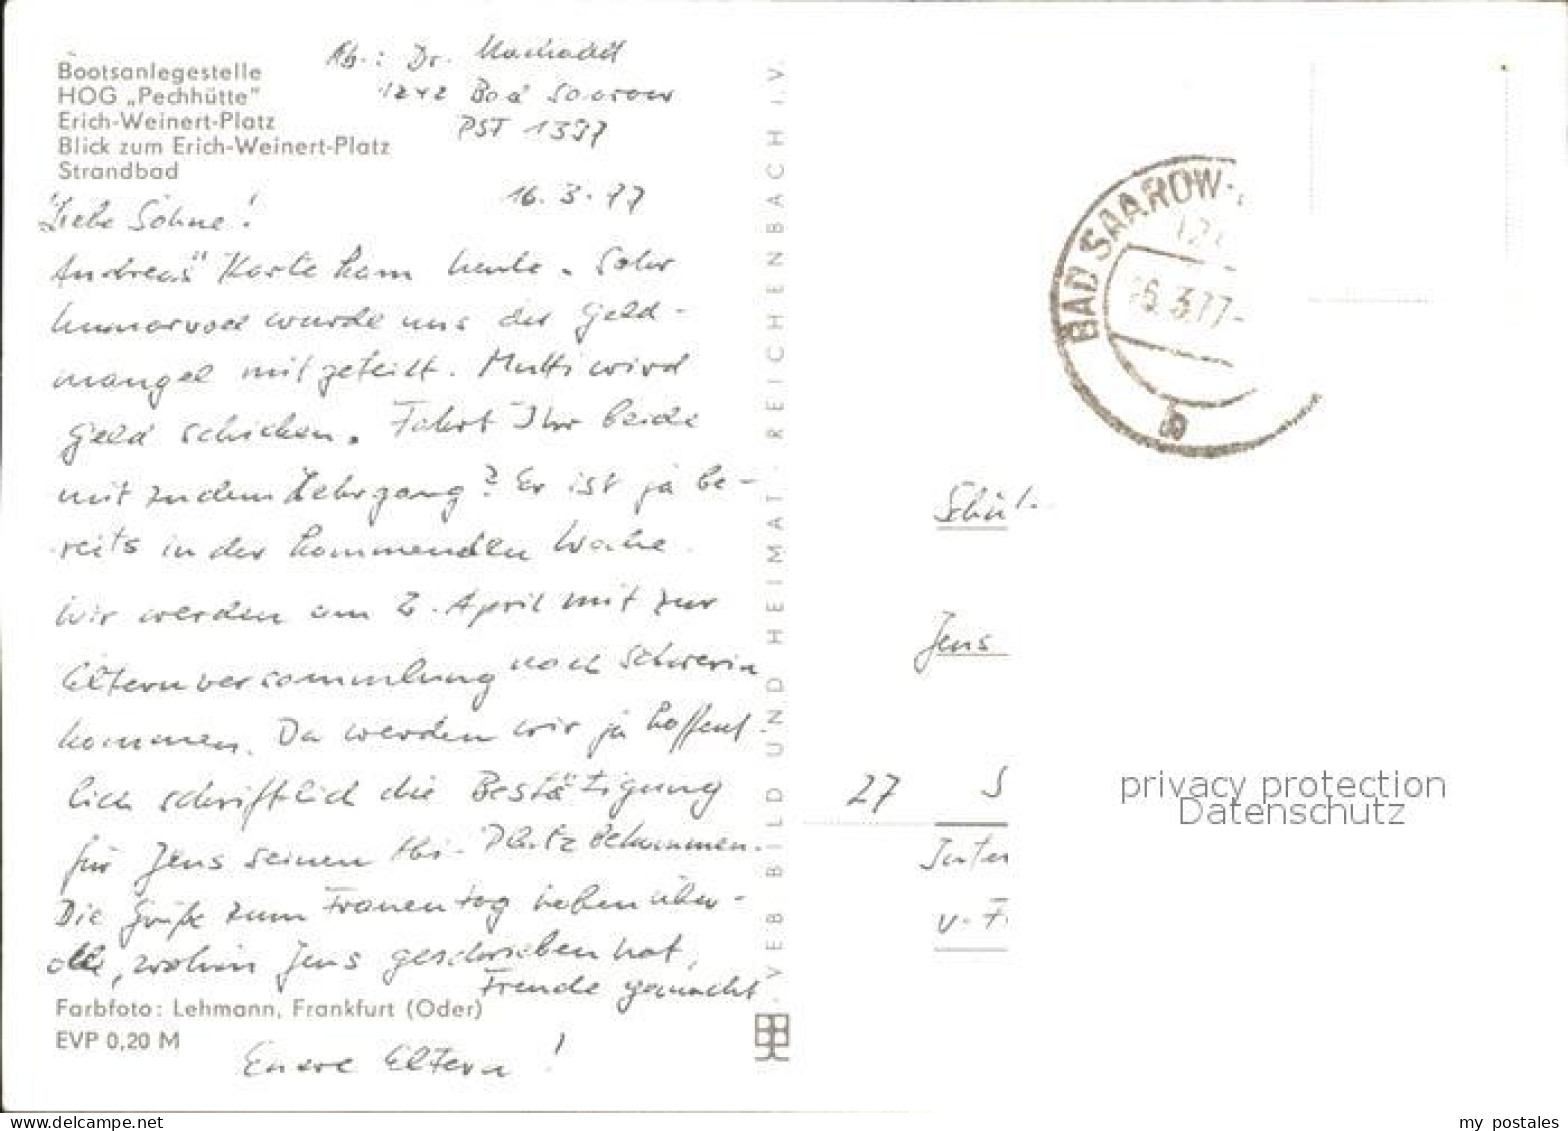 Bootsanlegestelle
HOG „Pechhütte"
Erich-Weinert-Platz
Blick zum Erich-Weinert-Platz
Strandbad
Ab.: Dr.
1242 Bad Saarow
PST 1397
16. 3. 77
Liebe Söhne!
Andreas" Karte kam heute. Sehr
humorvoll wurde uns der Geld-
mangel mitgeteilt. Mutti wird
Geld schicken. Fahrt Ihr beide
mit zu dem Lehrgang? Er ist ja be-
reits in der kommenden Woche.
Wir werden am 2. April mit zur
Elternversammlung nach Schwerin
kommen. Da werden wir ja hoffent
lich schriftlich die Bestätigung
für Jens seinen Abi-Platz bekommen.
Die Grüße zum Frauentag haben über-
all, wohin Jens geschrieben hat,
Freude gemacht
Farbfoto: Lehmann, Frankfurt (Oder)
EVP 0,20 M
Eure Eltern!
VEB BILD UND HEIMAT · REICHENBACH I. V.
BAD SAAROW-
6.3.77-
b
Schül
Jens
27 S
Inter
v. F.
privacy protection
Datenschutz
delcampe.net
my_postales